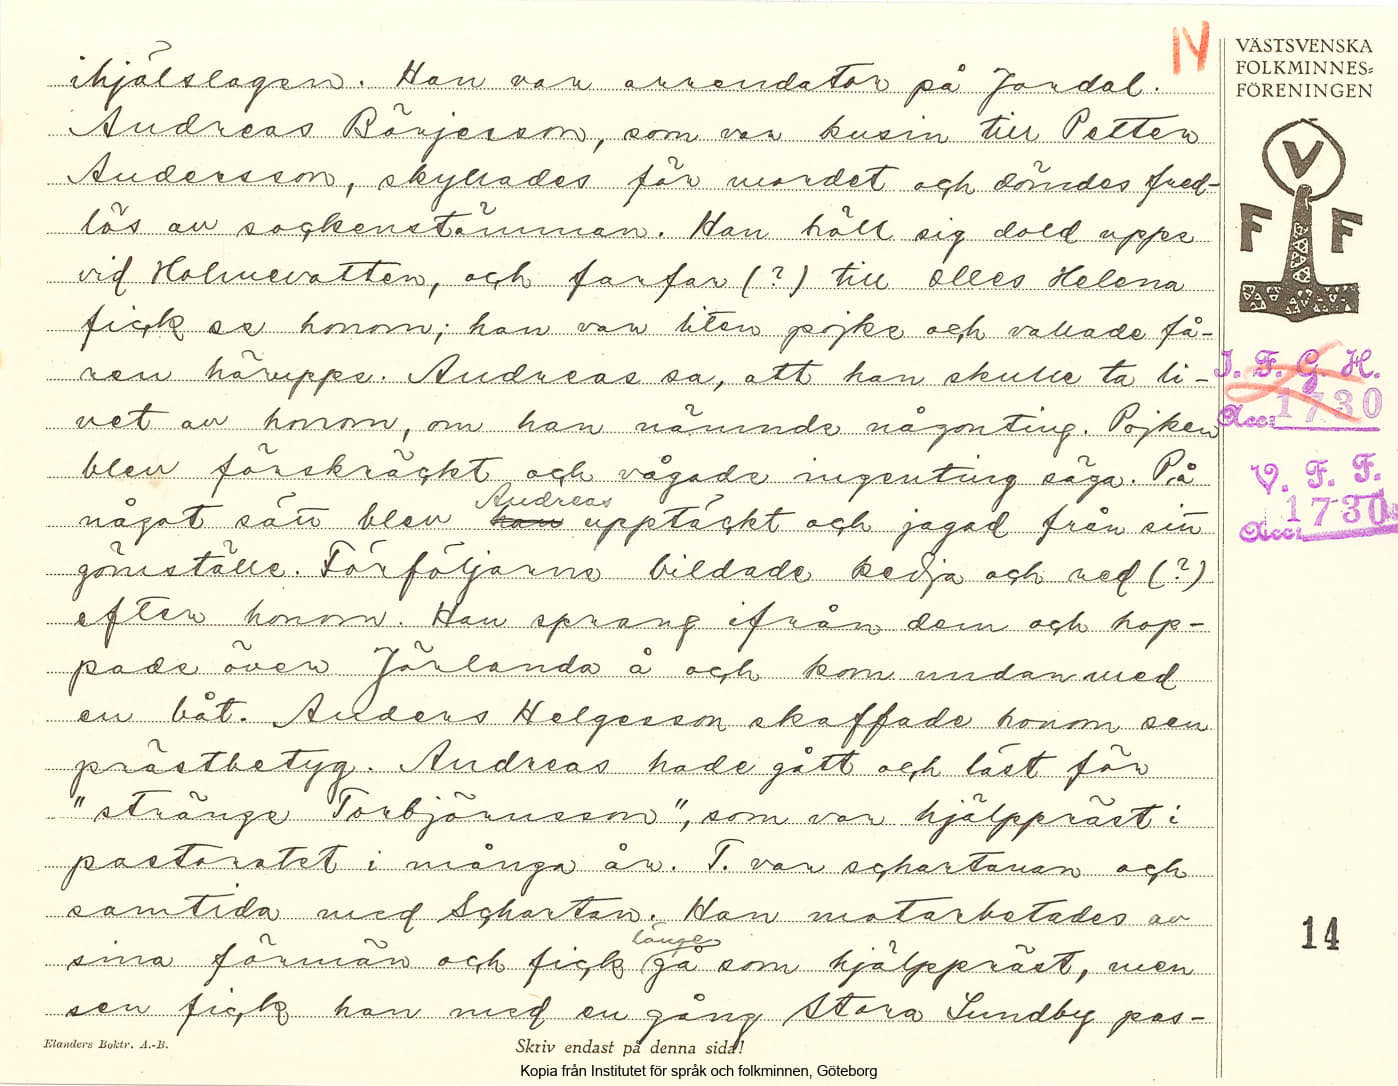 IV
VÄSTSVENSKA
FOLKMINNES=
FÖRENINGEN
V
F F
I. F. G. H.
Acc: 1730
V. F. F.
Acc: 1730
14
ihjälslagen. Han var arrendator på Jordal.
Andreas Börjesson, som var kusin till Petter
Andersson, skyllades för mordet och dömdes fred-
lös av sockenstämman. Han höll sig dold uppe
vid Holmevatten, och farfar (?) till Olles Helena
fick se honom; han var liten pojke och vallade få-
ren häruppe. Andreas sa, att han skulle ta li-
vet av honom, om han nämnde någonting. Pojken
blev förskräckt och vågade ingenting säga. På
något sätt blev han Andreas upptäckt och jagad från sitt
gömställe. Förföljarne bildade kedja och red (?)
efter honom. Han sprang ifrån dem och hop-
pade över Jörlanda å och kom undan med
en båt. Anders Helgesson skaffade honom sen
prästbetyg. Andreas hade gått och läst för
"stränge Torbjörnsson", som var hjälppräst i
pastoratet i många år. T. var schartauan och
samtida med Schartau. Han motarbetades av
sina förmän och fick länge gå som hjälppräst, men
sen fick han med en gång Stora Lundby pas-
Elanders Boktr. A.-B.
Skriv endast på denna sida!
Kopia från Institutet för språk och folkminnen, Göteborg